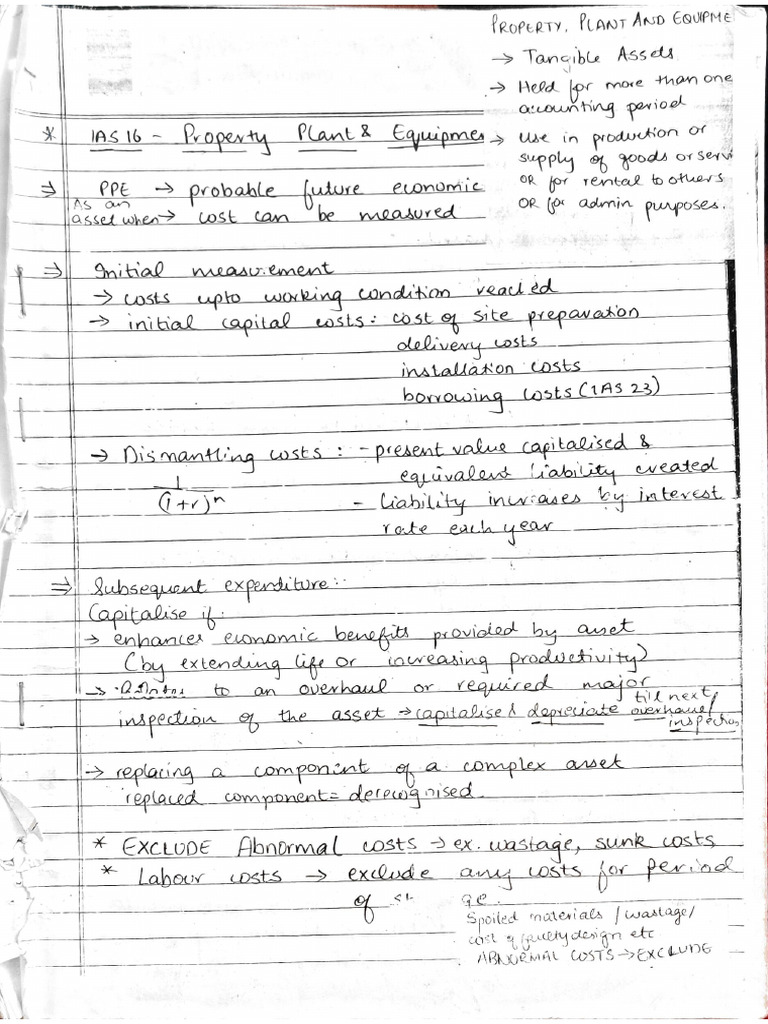 PROPERTY, PLANT AND EQUIPME
→ Tangible Assets
→ Held for more than one
accounting period
→ use in production or
supply of goods or servi
OR for rental to others
OR for admin purposes.
* IAS 16 - Property Plant & Equipmen
⇒ PPE → probable future economic
As an
asset when → cost can be measured
⇒ Initial measurement
→ costs upto working condition reached
→ initial capital costs: cost of site preparation
delivery costs
installation costs
borrowing costs (IAS 23)
→ Dismantling costs: - present value capitalised &
equivalent liability created
1/(1+r)^n - liability increases by interest
rate each year
⇒ Subsequent expenditure:
Capitalise if:
→ enhances economic benefits provided by asset
(by extending life or increasing productivity)
→ to an overhaul or required major
inspection of the asset → capitalise & depreciate till next overhaul/
inspection
→ replacing a component of a complex asset
replaced component = derecognised
* EXCLUDE Abnormal costs → ex. wastage, sunk costs
* Labour costs → exclude any costs for period
of
Spoiled materials / wastage/
cost of faulty design etc
ABNORMAL COSTS → EXCLUDE